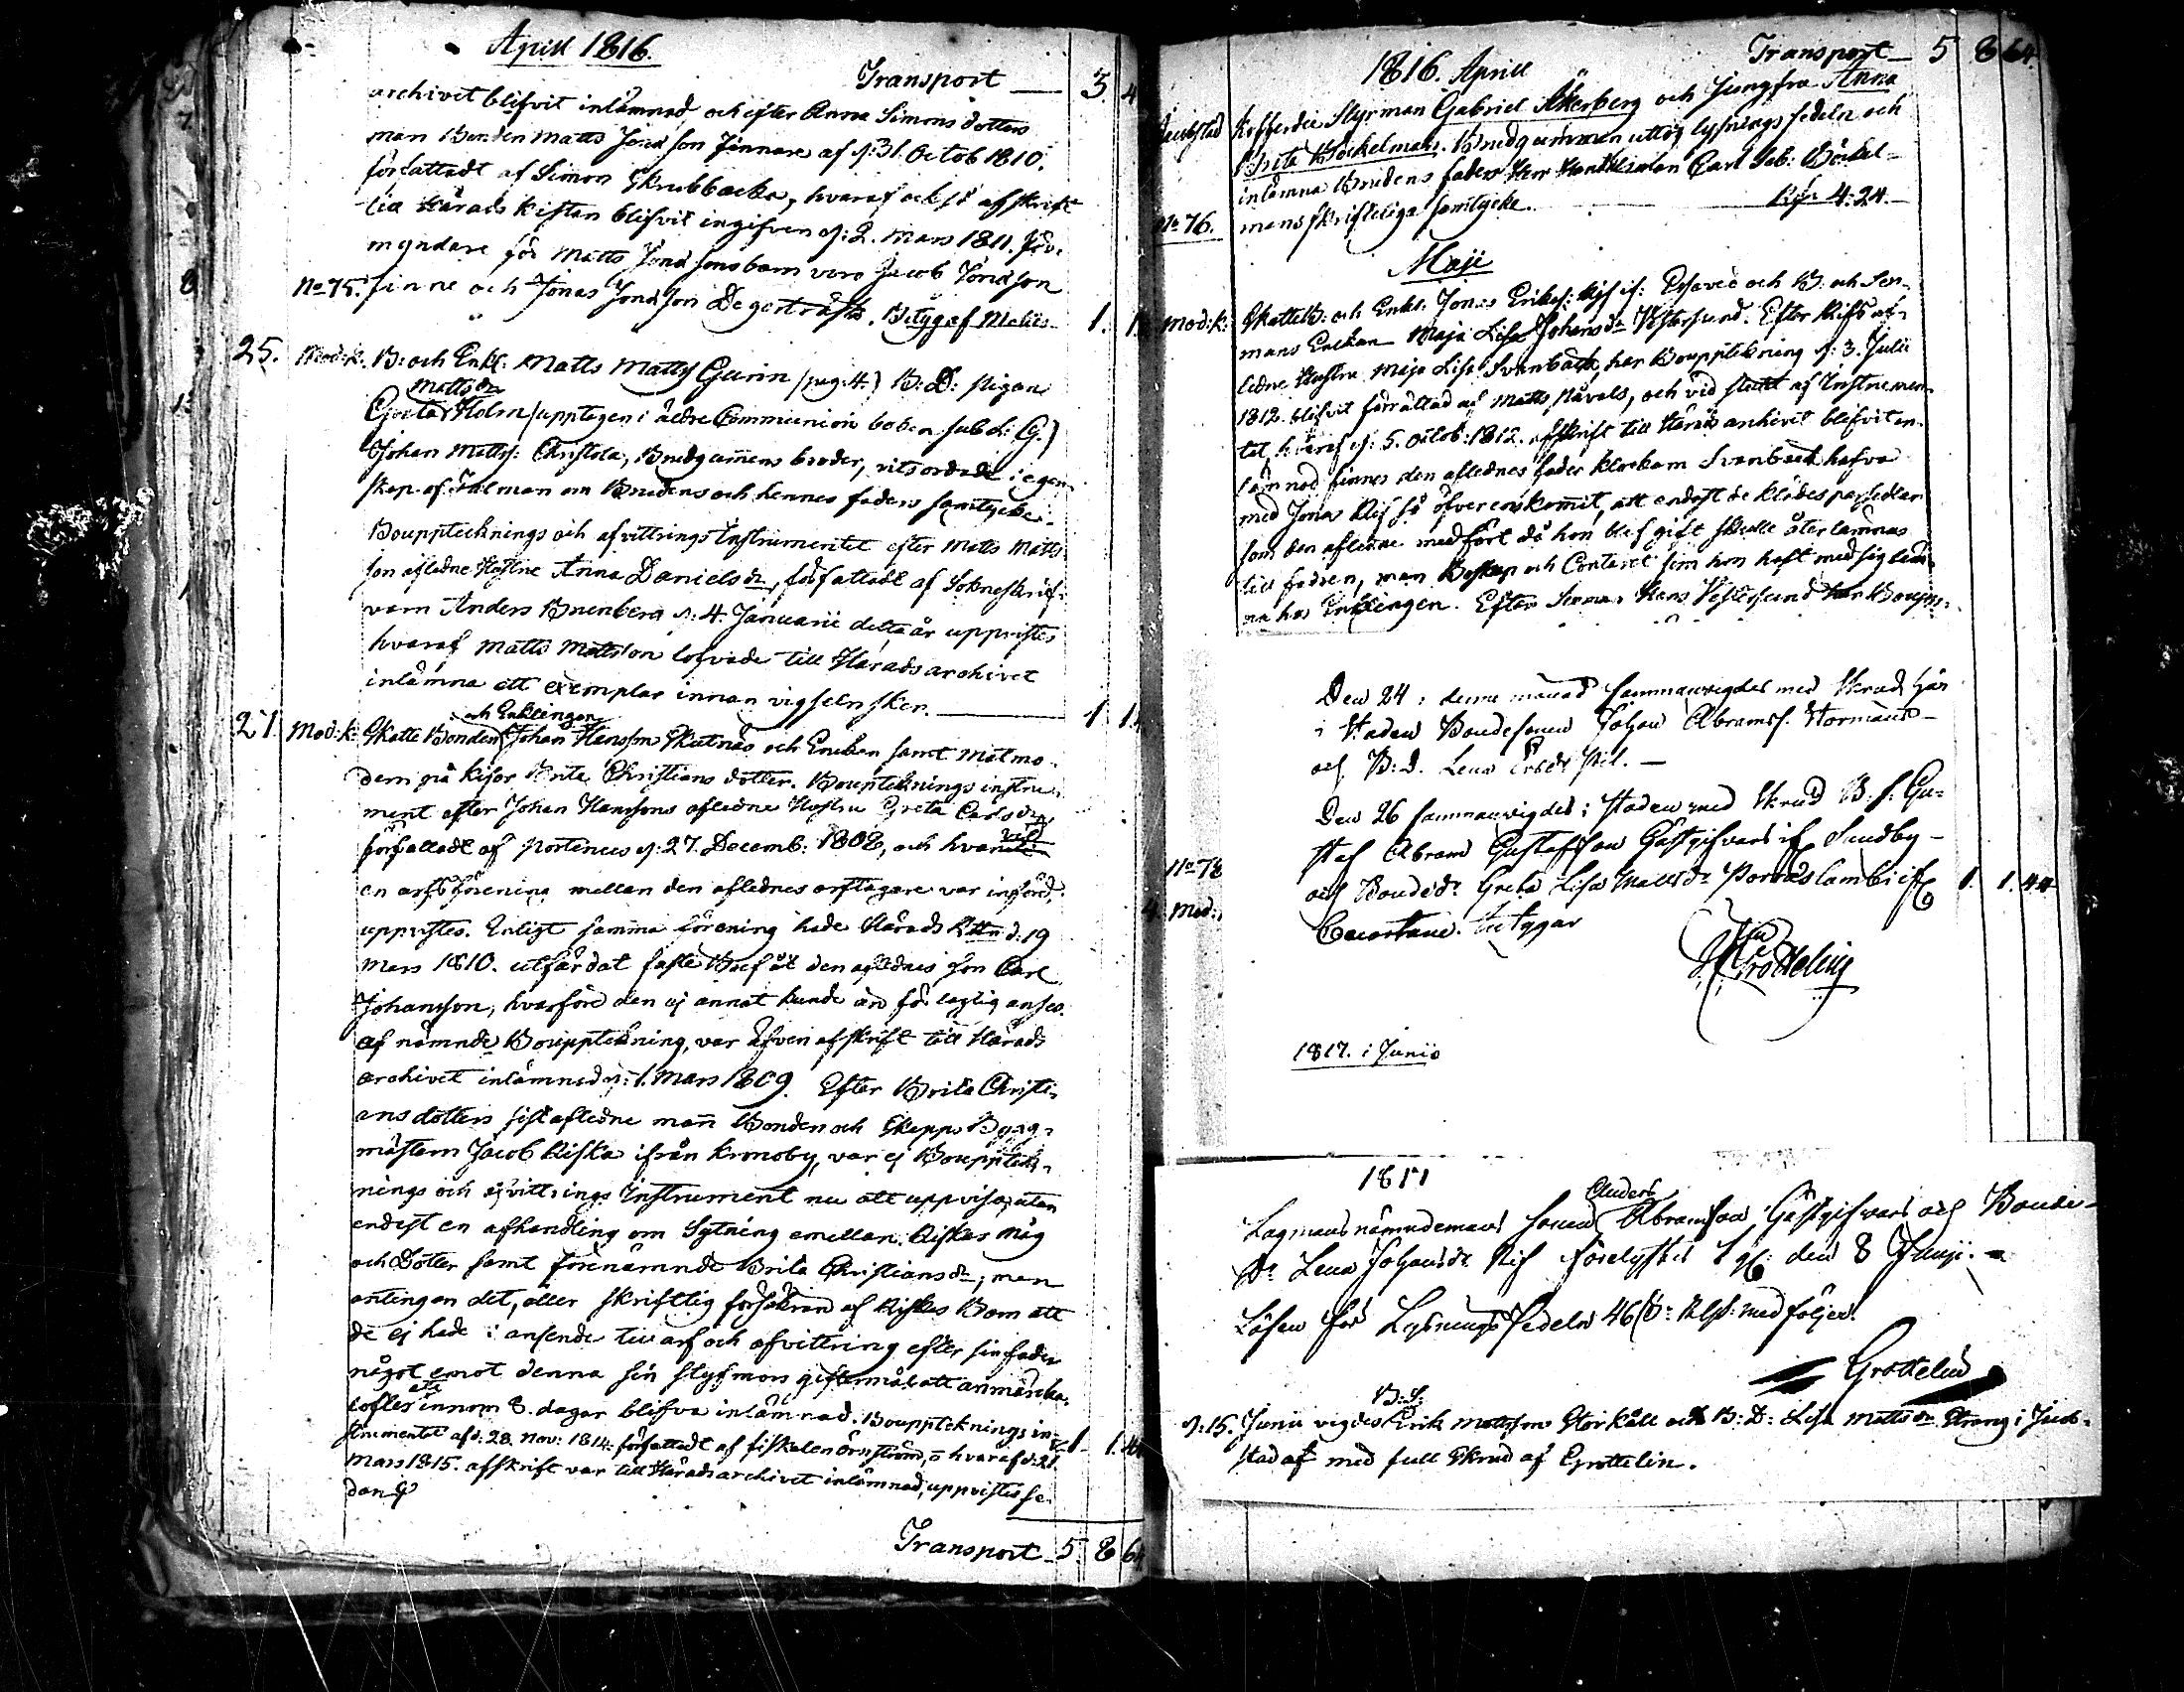 Aprill 1816.
Transport 3. 4
archivet blifvit inlämnad, och efter Anna Simons dotters
man Bonden Matts Jonæson Finnare af d: 31. Octob 1810.
författadt af Simon Skrubbacka, hvaraf också afskrift
till Härads kistan blifvit ingifven d: 2. Mars 1811. För-
myndare för Matts Jonæsons barn voro Jacob Jonæson
No 75. Finne och Jonas Jonæson Degerträsk. Betyg af 1. 1.
25. Mod:k. B: och Enkl: Matts Matts Gunin (pag: 4.) B: D: pigan
Matts Dr
Greta Holm (upptagen i äldre Communion boken sub L: G.)
Johan Matts: Christola, Brudgummens broder, vitsordade i egen-
skap af Talman om Brudens och hennes faders samtycke.
Boupptecknings och afvittrings Instrumentet efter Matts Matts-
son afledne Hustru Anna Daniels Dr, författadt af Sokneskrif-
varn Anders Brunberg d: 4. Januarii detta år uppvistes
hvaraf Matts Mattsson lofvade till Härads archivet
inlämna ett exemplar innan vigseln sker. 1 1.
och Enklingen
27. Mod:k: Skatte Bonden Johan Hansson Skutnäs och Enkan samt Matmo-
dern på Brita Christians dotter. Bouptecknings instru-
ment efter Johan Hanssons afledne Hustru Greta Carls Dr,
författadt af Portenius d: 27. Decemb: 1808, och hvarvid
en arfsförening mellan den aflednes arftagare var införd,
uppvistes. Enligt samma förening hade Härads Rätten d: 19
Mars 1810. utfärdat faste Bref åt den aflednes son Carl
Johansson, hvarföre den ej annat kunde än för laglig anses.
Af nämnde Bouppteckning, var äfven afskrift till Härads
archivet inlämnad d: 1. Mars 1809. Efter Brita Christi-
ans dotters sist afledne man Bonden och Skepps Bygg-
mästarn Jacob Riska ifrån Kronoby, var ej Bouppteck-
nings och afvittrings Instrument nu att uppvisa, utan
endast en afhandling om Sytning emellan Riskas måg
och Dotter samt förenämnde Brita Christians Dr, men
antingen det, eller skriftlig försäkran af Riskas Barn att
de ej hade i anseende till arf och afvittring efter sin fader
något emot denna sin styfmors giftermål att anmärka,
loftes att innom 8. dagar blifva inlämnad. Bouppteknings in-
strumentet af d: 28. Nov: 1814. författadt af fiskalen Örnström, o hvaraf d: 21. 1. 1. 44
Mars 1815. afskrift var till Härads archivet inlämnad, uppvistes se-
dan
Transport 5. 8 64
1816. Aprill Transport 5 8 64.
Jacobstad Kofferdie Styrman Gabriel Åkerberg och Jungfru Anna
Greta Böckelman. Brudgumman uttog lysnings sedeln och
inlämna Brudens fader Herr Handelsman Carl Seb: Böckel-
No 76. mans skrifteliga samtycke. Rf: 4:24.
Maji
Mod:k: Skatte B: och Enkl: Jonas Eriks: Rif if: och B: och Sen-
mans Enckan Maja Lisa Johans Dr Västersund. Efter Rifs af-
ledne Hustru Maja Lisa Svanback, har Bouppteckning d: 3. Julii
1812. blifvit förrättad af Matts Påvals, och vid slutet af Instrumen-
tet, hvaraf d: 5. Octob: 1812. afskrift till Härads archivet blifvit in-
lämnad finnes den aflednes fader klockarn Svanback hafva
med Jonas Rif så öfverenskommit, att endast de klädes persedlar
som den afledne medfört då hon blef gift skulle återlämnas
till fadren, men Boskap och Contant som hon haft med sig lem-
na hos Enklingen. Efter Hans Vestersund har Bouppt.
Den 24: denne månad sammanvigdes med Skrud här
i Staden Bondesonen Johan Abramss. Stormans
och B: D. Lena Ersdr Pil. —
Den 26 sammanvigdes i Staden med Skrud B: s: Gu-
staf Abram Gustafsson Gästgifvars if Sundby
No 78 och Bonded: Greta Lisa Matsdr Porkas lambi if 1. 1. 44
4. Mod:
1817. i Junio
1817
Anders
Lagmans nämndemans sonen Abramsson Gästgifvars och Bonde-
Dr Lena Johansdr Rif förelystes 1 g: den 8 Junji.
Lösen för Lysnings Sedeln 46 Rlsp: medföljer.
Grottelin
B: S:
d: 15. Junii vigdes Erik Mattsson Storkåll och B: D: Lisa Matts Dr Streng i Jacob-
stad af med full Skrud af Grottelin.